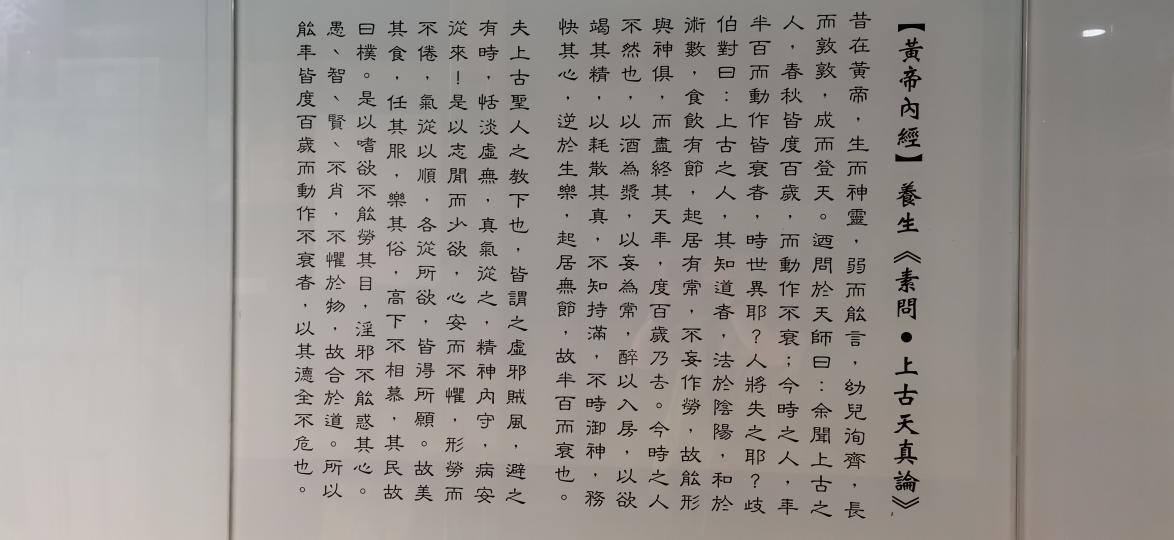 【黃帝內經】養生《素問●上古天真論》
昔在黃帝，生而神靈，弱而能言，幼兒洵齊，長
而敦敦，成而登天。迺問於天師曰：余聞上古之
人，春秋皆度百歲，而動作不衰；今時之人，年
半百而動作皆衰者，時世異耶？人將失之耶？歧
伯對曰：上古之人，其知道者，法於陰陽，和於
術數，食飲有節，起居有常，不妄作勞，故能形
與神俱，而盡終其天年，度百歲乃去。今時之人
不然也，以酒為漿，以妄為常，醉以入房，以欲
竭其精，以耗散其真，不知持滿，不時御神，務
快其心，逆於生樂，起居無節，故半百而衰也。
夫上古聖人之教下也，皆謂之虛邪賊風，避之
有時，恬淡虛無，真氣從之，精神內守，病安
從來！是以志閒而少欲，心安而不懼，形勞而
不倦，氣從以順，各從所欲，皆得所願。故美
其食，任其服，樂其俗，高下不相慕，其民故
曰樸。是以嗜欲不能勞其目，淫邪不能惑其心。
愚、智、賢、不肖，不懼於物，故合於道。所以
能年皆度百歲而動作不衰者，以其德全不危也。